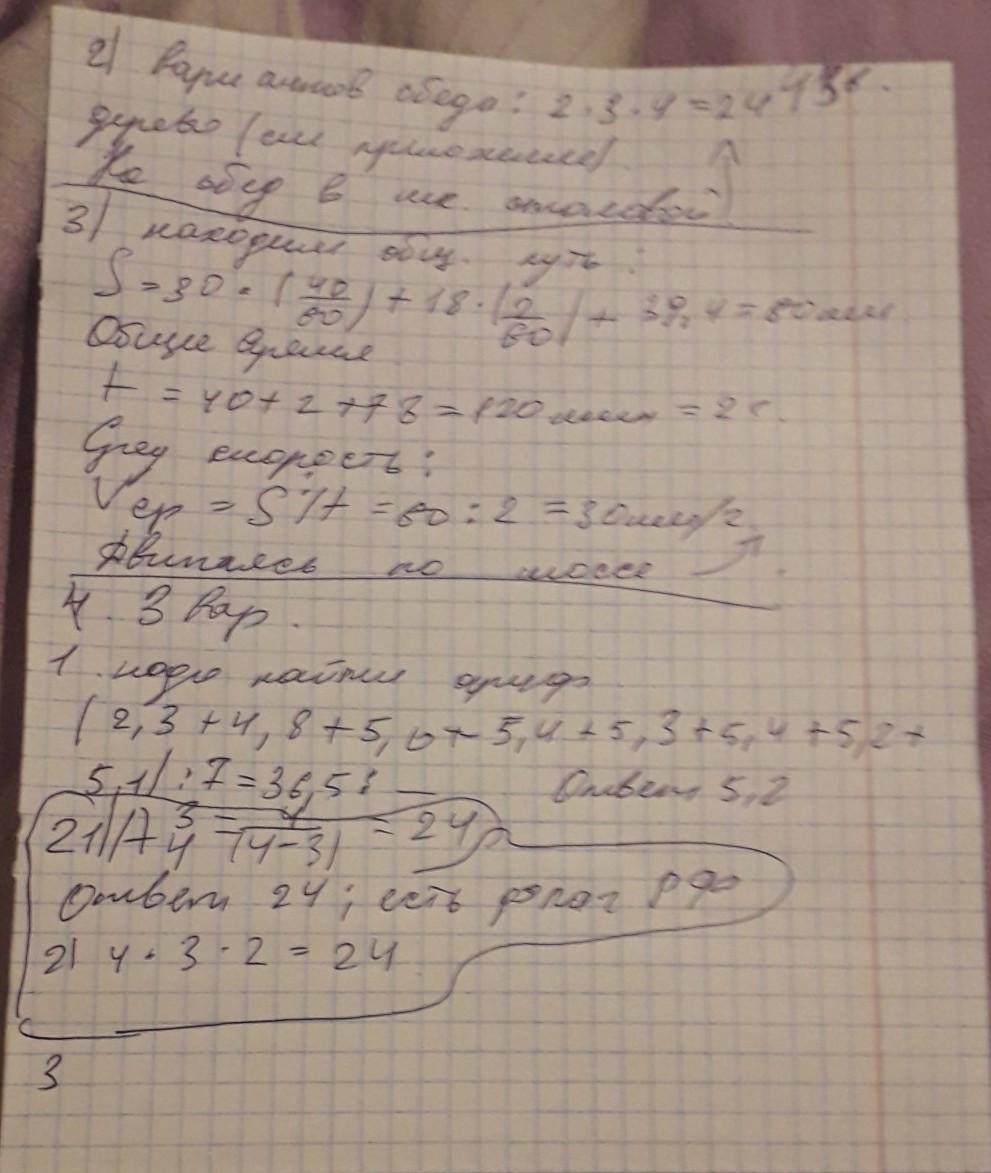 2) Вариантов обеда: 2·3·4=24 43в.
дерево (см приложение)
На обед в шк. столовой
3) находим общ. путь:
S=30·(40/60)+18·(2/60)+39,4=60км
Общие время
t=40+2+78=120мин=2ч.
Сред скорость:
Vср=S:t=60:2=30км/ч
Двигаясь по шоссе
4. 3 вар.
1. надо найти ариф
(2,3+4,8+5,0+5,4+5,3+5,4+5,2+
5,1):7=36,5:
Ответ 5,2
2) A 3 4 = 4 (4-3) = 24
Ответ 24; есть флаг РФ
2) 4·3·2=24
3